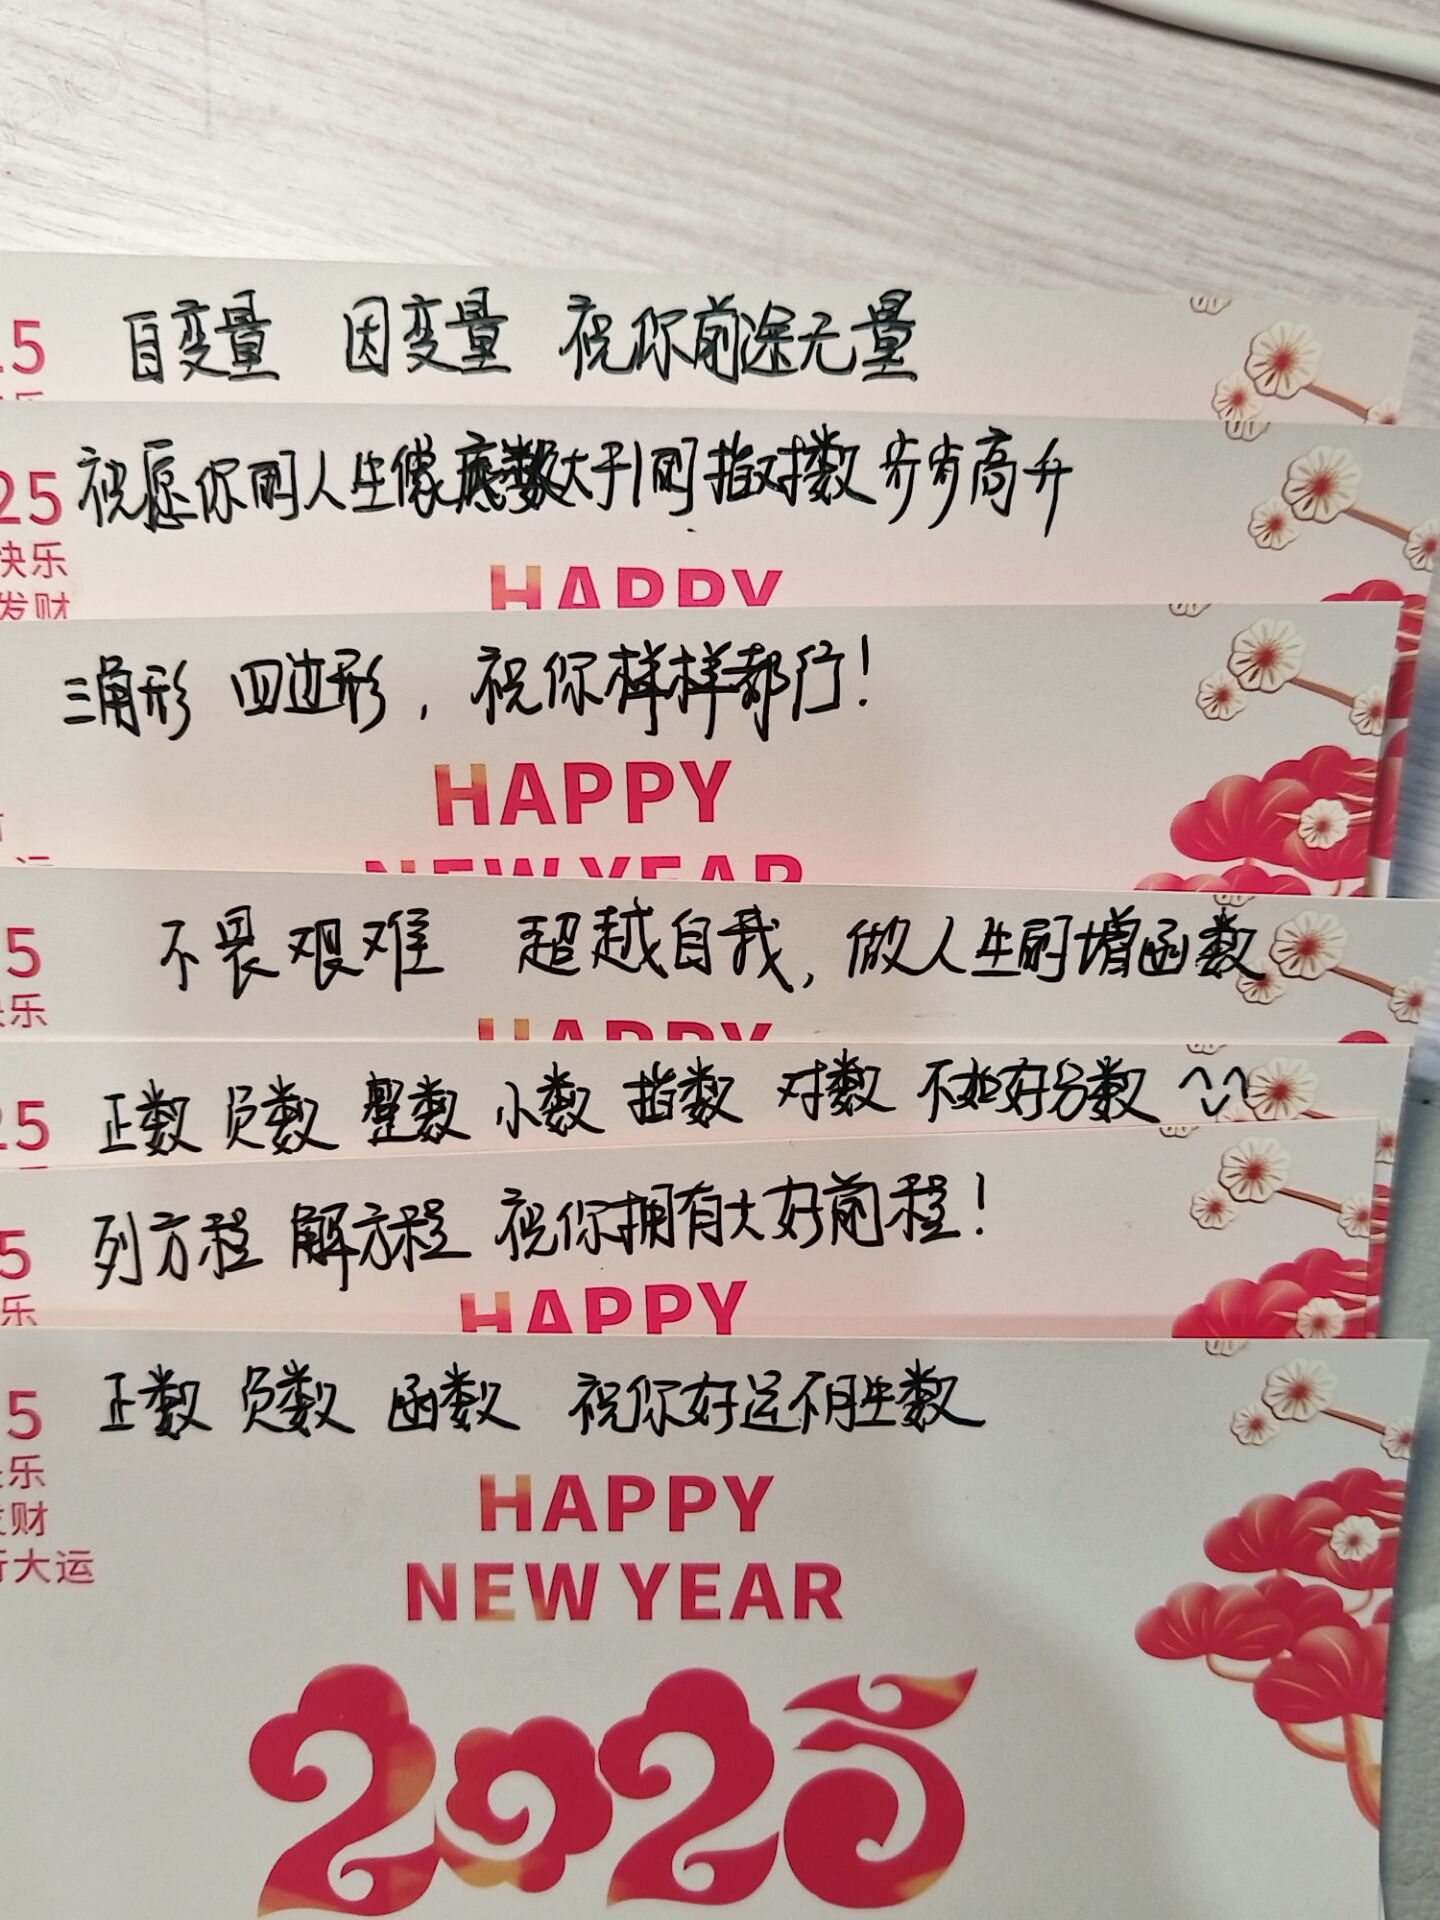 自变量 因变量 祝你前途无量
祝愿你的人生像底数大于1的指对数 步步高升
25
快乐
发财
HAPPY
三角形 四边形，祝你样样都行！
HAPPY
NEW YEAR
不畏艰难 超越自我，做人生的增函数
5
乐
HAPPY
正数 负数 整数 小数 指数 对数 不如好分数 ^^
25
列方程 解方程 祝你拥有大好前程！
5
乐
HAPPY
正数 负数 函数 祝你好运不胜数
5
乐
财
行大运
HAPPY
NEW YEAR
2025